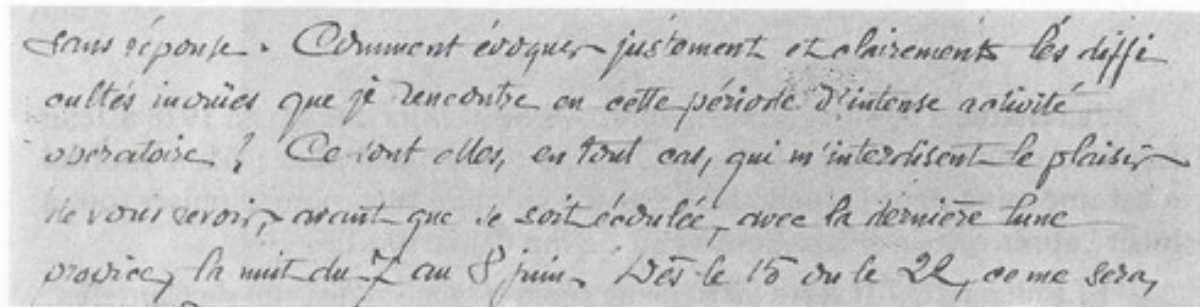 sans réponse. Comment évoquer justement et clairement les diffi
cultés inouïes que je rencontre en cette période d'intense activité
opératoire ? Ce sont elles, en tout cas, qui m'interdisent le plaisir
de vous revoir, avant que se soit écoulée, avec la dernière lune
propice, la nuit du 7 au 8 juin. Dès le 15 ou le 22, ce me sera,